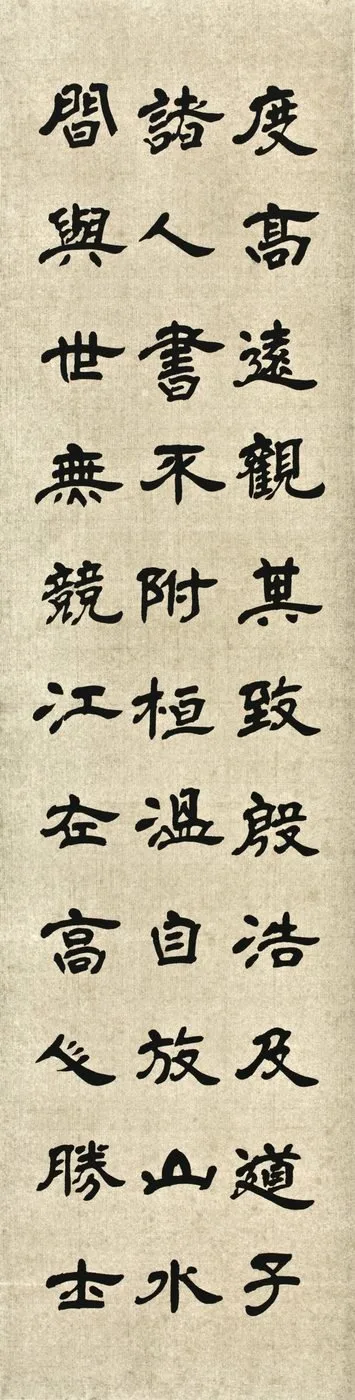 度高遠觀其致殷浩及道子
諸人書不附桓溫自放山水
間與世無競江左高人勝士